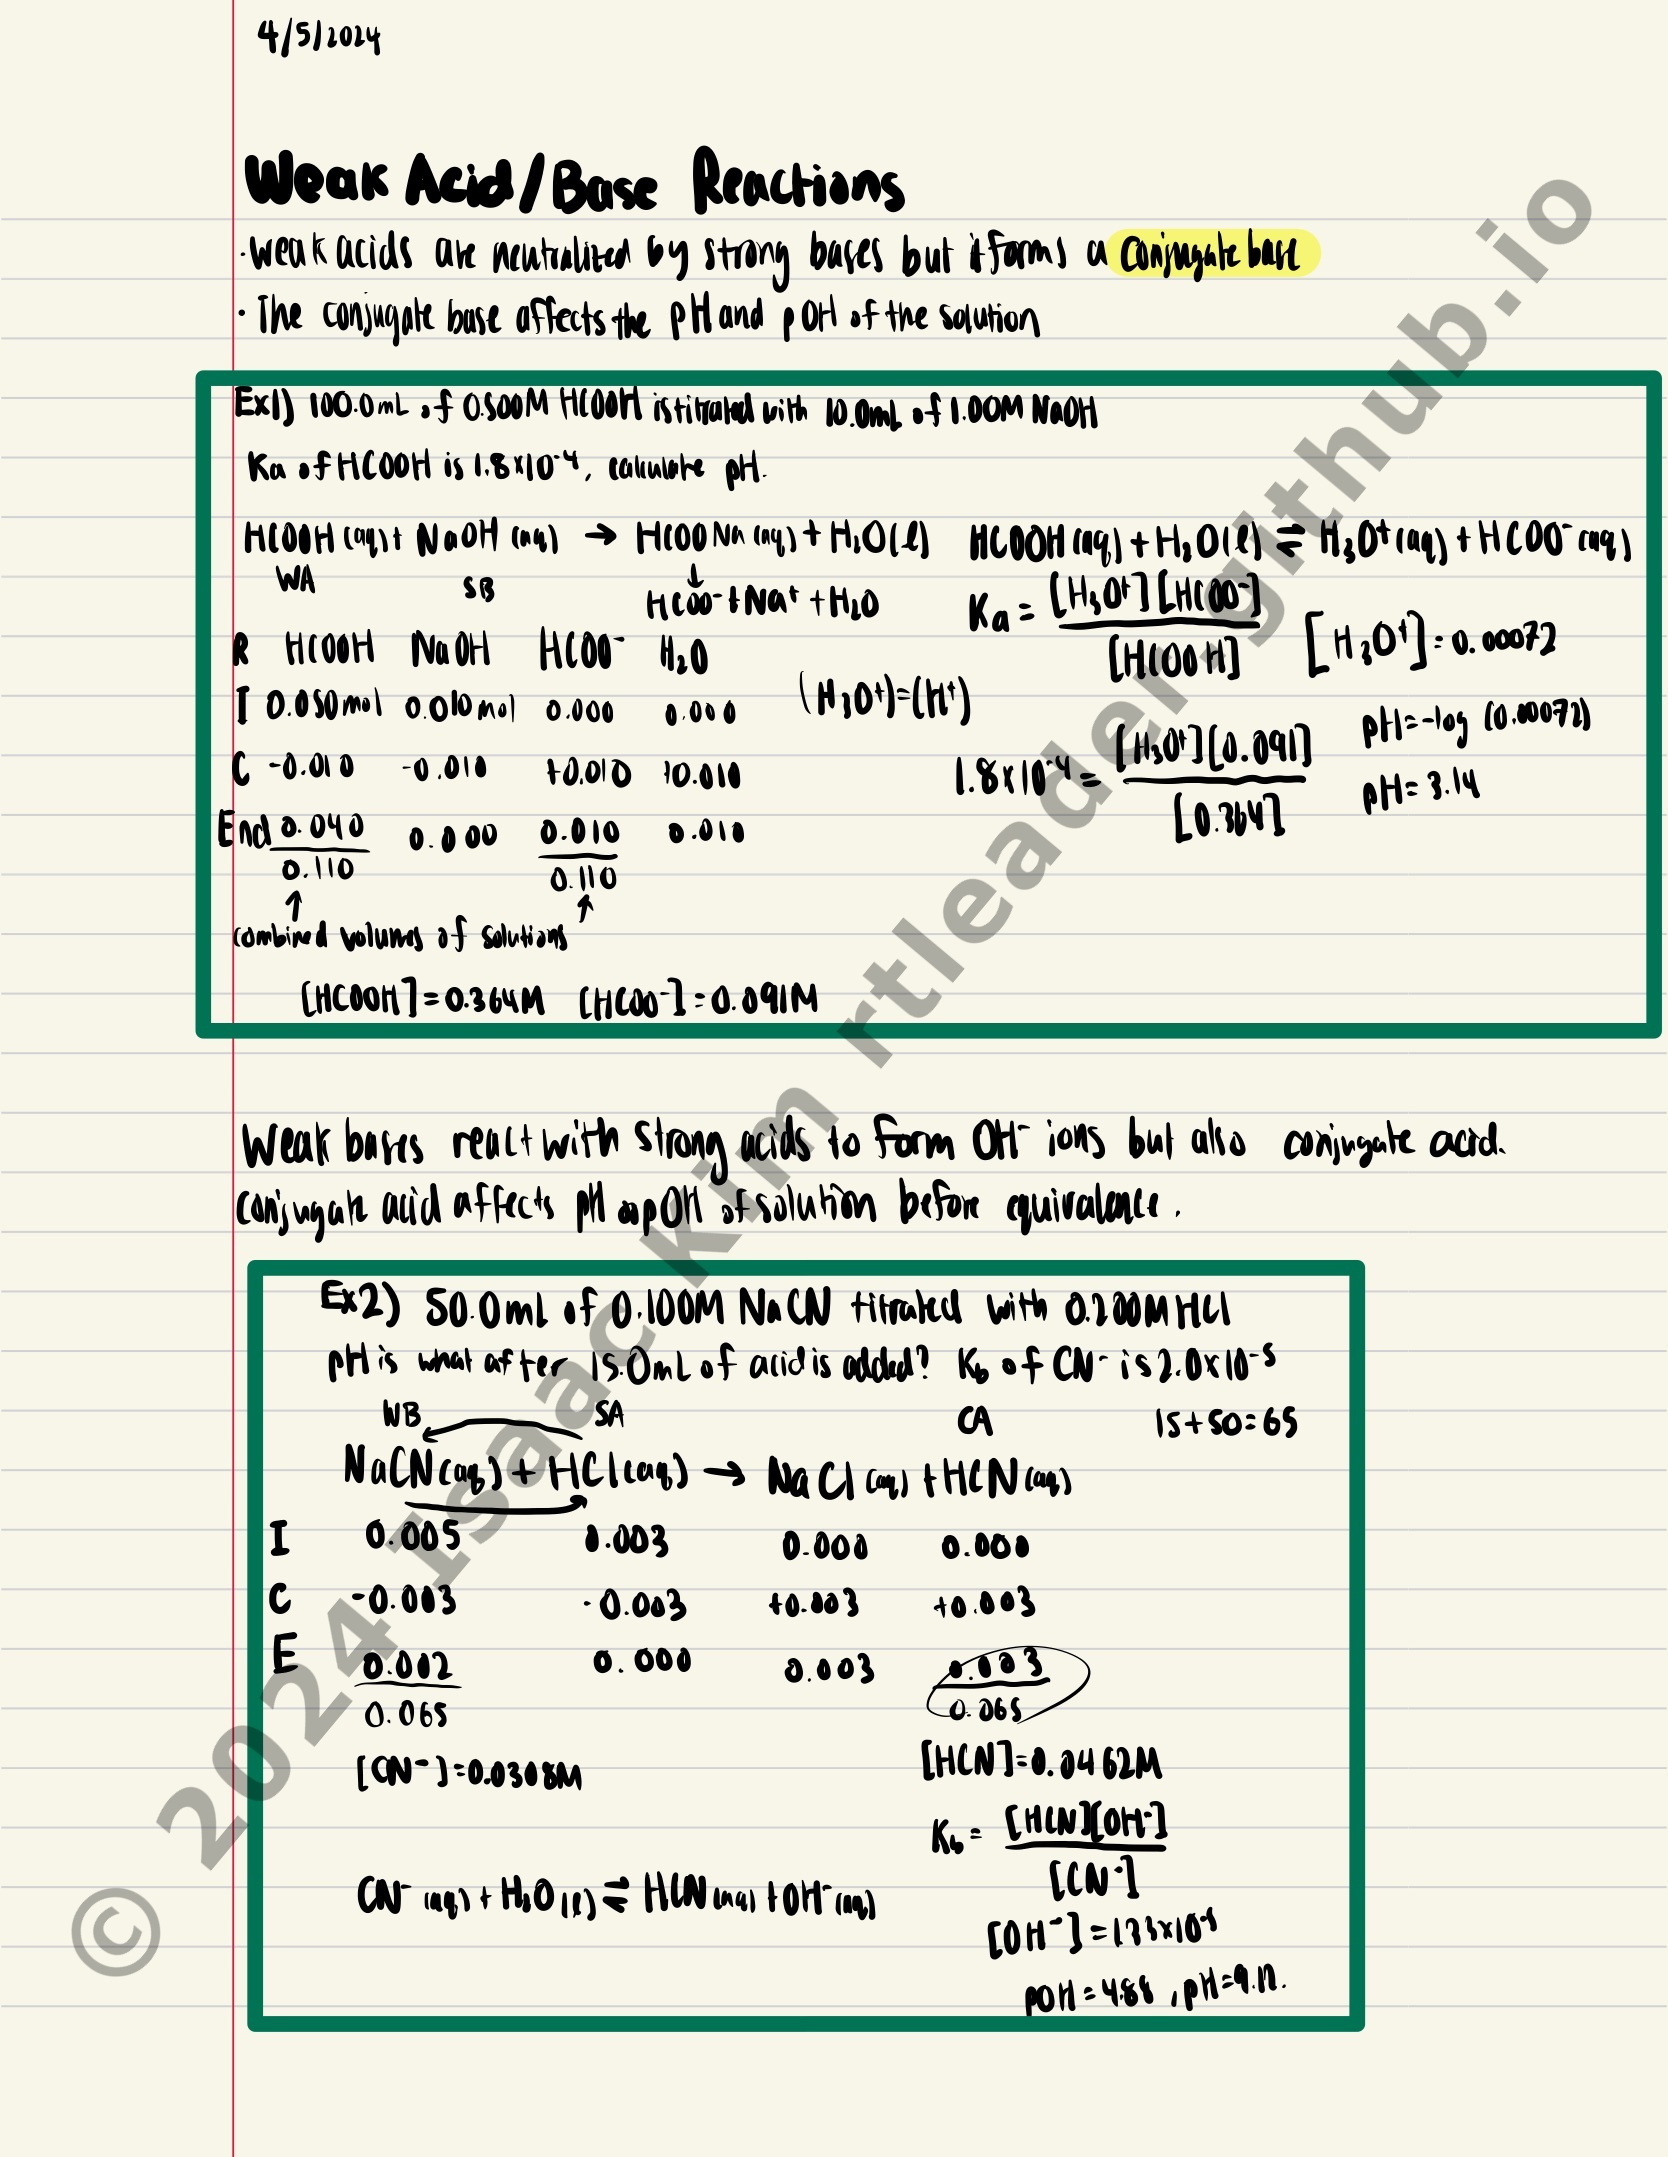 4/5/2024
Weak Acid/Base Reactions
· Weak acids are neutralized by strong bases but it forms a conjugate base
· The conjugate base affects the pH and pOH of the solution
Ex1) 100.0mL of 0.500M HCOOH is titrated with 10.0mL of 1.00M NaOH
Ka of HCOOH is 1.8x10⁻⁴, calculate pH.
HCOOH (aq) + NaOH (aq) → HCOONa (aq) + H₂O(l)
WA SB ↓
HCOO⁻ + Na⁺ + H₂O
R HCOOH NaOH HCOO⁻ H₂O
I 0.050mol 0.010mol 0.000 0.000
C -0.010 -0.010 +0.010 +0.010
End 0.040 0.000 0.010 0.010
0.110 0.110
↑ ↑
combined volumes of solutions
[HCOOH] = 0.364M [HCOO⁻] = 0.091M
HCOOH(aq) + H₂O(l) ⇌ H₃O⁺(aq) + HCOO⁻(aq)
Ka = [H₃O⁺][HCOO⁻]
[HCOOH]
(H₃O⁺)=(H⁺)
1.8x10⁻⁴ = [H₃O⁺][0.091]
[0.364]
[H₃O⁺] = 0.00072
pH = -log (0.00072)
pH = 3.14
Weak bases react with strong acids to form OH⁻ ions but also conjugate acid.
Conjugate acid affects pH pOH of solution before equivalence.
Ex2) 50.0mL of 0.100M NaCN titrated with 0.200M HCl
pH is what after 15.0mL of acid is added? Kb of CN⁻ is 2.0x10⁻⁵
WB SA CA 15+50=65
NaCN(aq) + HCl(aq) → NaCl(aq) + HCN(aq)
I 0.005 0.003 0.000 0.000
C -0.003 -0.003 +0.003 +0.003
E 0.002 0.000 0.003 0.003
0.065 0.065
[CN⁻]=0.0308M [HCN]=0.0462M
Kb = [HCN][OH⁻]
[CN⁻]
CN⁻(aq) + H₂O(l) ⇌ HCN(aq) + OH⁻(aq)
[OH⁻] =
pOH = 4.88, pH = 9.12.
© 2024 Isaac Kim rtleader.github.io